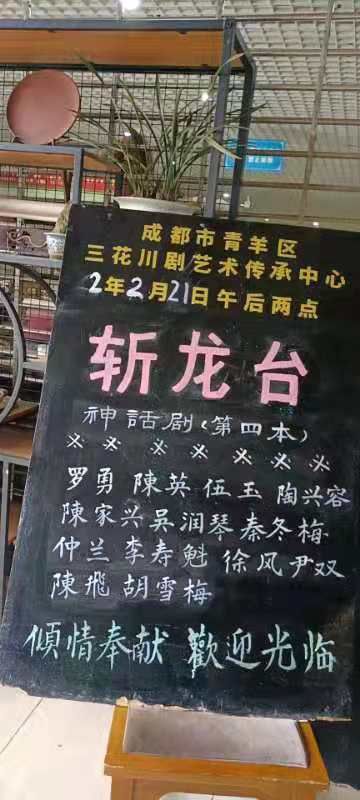 成都市青羊区
三花川剧艺术传承中心
2年2月21日午后两点
斩龙台
神話剧(第四本)
※ ※ ※ ※ ※ ※ ※
罗勇 陳英 伍玉 陶兴容
陳家兴 吴润琴 秦冬梅
仲兰 李寿魁 徐风 尹双
陳飛 胡雪梅
倾情奉献 歡迎光临